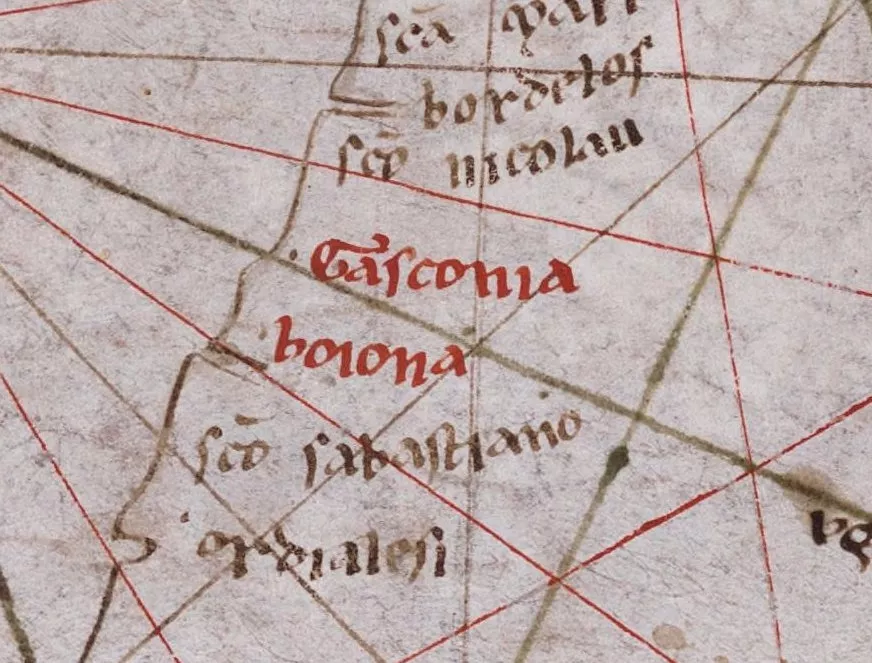 scã
bordelos
scõ nicolau
Gãsconia
boiona
scõ sabastiano
ordialesi